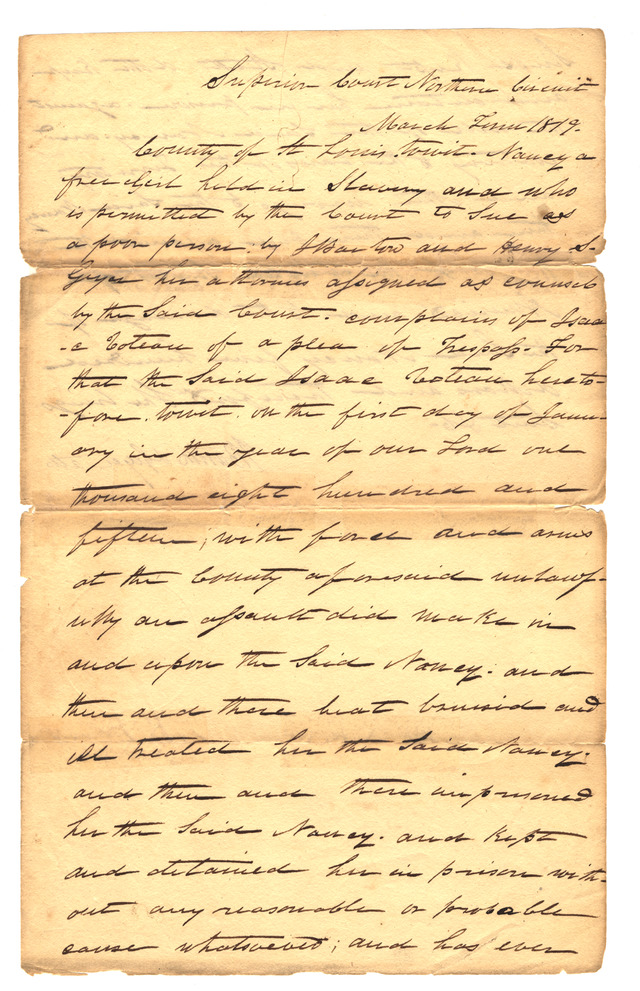 Superior Court Northern Circuit
March Term 1819.
County of St Louis towit. Nancy a
free Girl held in Slavery and who
is permitted by the Court to Sue as
a poor person. by J Barton and Henry S.
Geyer her attornies assigned as counsel
by the Said Court. complains of Isaa
-c Coteau of a plea of Trespass. For
that the Said Isaac Coteau hereto-
-fore. towit. on the first day of Janu-
ary in the year of our Lord one
thousand eight hundred and
fifteen; with force and arms
at the County aforesaid unlawf-
ully an assault did make in
and upon the Said Nancy. and
then and there beat bruised and
ill treated her the Said Nancy.
and then and there imprisoned
her the Said Nancy. and kept
and detained her in prison with-
out any reasonable or probable
cause whatsoever; and has ever